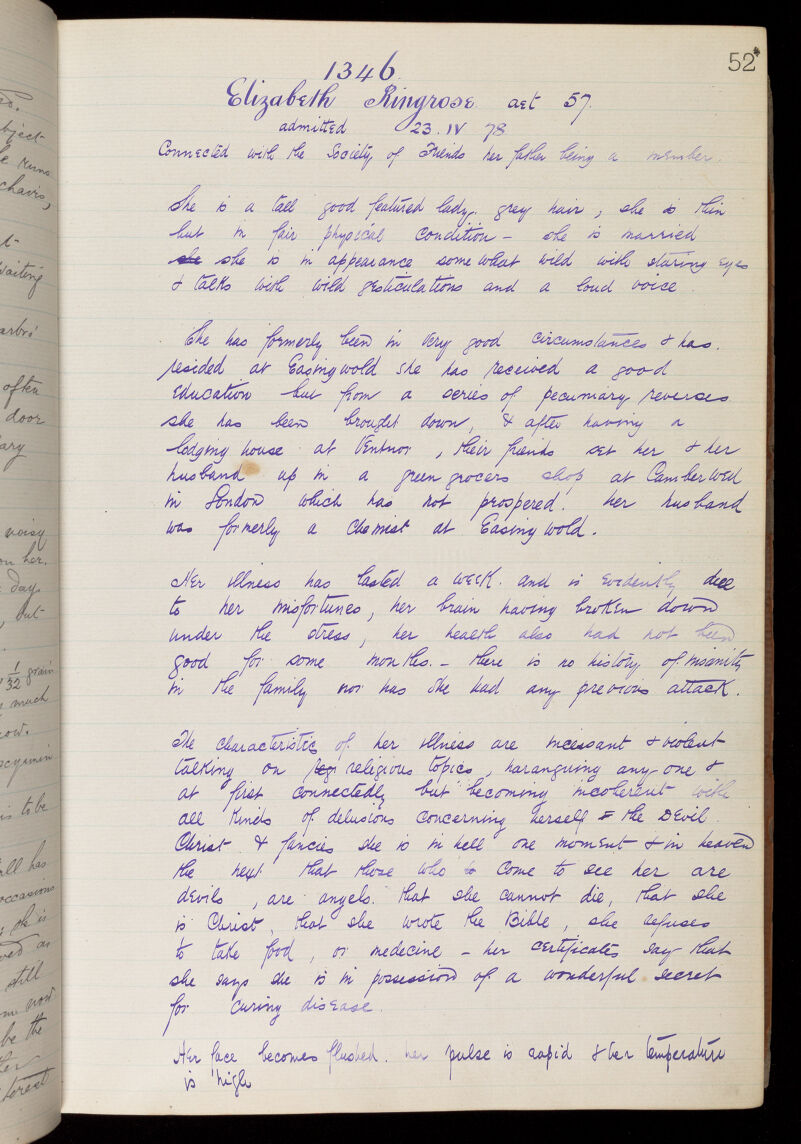 52*
1346.
Elizabeth Ringrose aet 57.
admitted 23. IV 78
Connected with the Society of Friends her father being a member.
She is a tall good featured lady, grey hair, she is thin
but in fair physical condition – she is married
she she is in appearance somewhat wild with staring eyes
& talks with wild gesticulations and a loud voice.
She has formerly been in very good circumstances & has.
resided at Easingwold she has received a good
education but from a series of pecuniary reverses
she has been brought down, & after having a
lodging house at Ventnor, their friends set her & her
husband up in a green grocers shop at Camberwell
in London which has not prospered. her husband
was formerly a Chemist at Easingwold.
Her illness has lasted a week. and is evidently due
to her misfortunes, her brain having broken down
under the stress, her health also had not been
good for some months. – there is no history of insanity
in the family nor has she had any previous attack.
The characteristic of her illness are incessant & violent
talking on religious topics, haranguing any one &
at first connectedly but becoming incoherent with
all kinds of delusions concerning herself & the Devil
Christ & fancies she is in hell one moment & in heaven
the next that those who to come to see her are
devils, are angels. that she cannot die, that she
is Christ, that she wrote the Bible, she refuses
to take food, or medecine – her certificates say that
she says she is in possession of a wonderful secret
for curing disease.
Her face becomes flushed. her pulse is rapid & her temperature
is high
often
door
noisy
on her.
days
, but
1/32 grain
much
is to be
all has
occasions
she is
as
still
be the